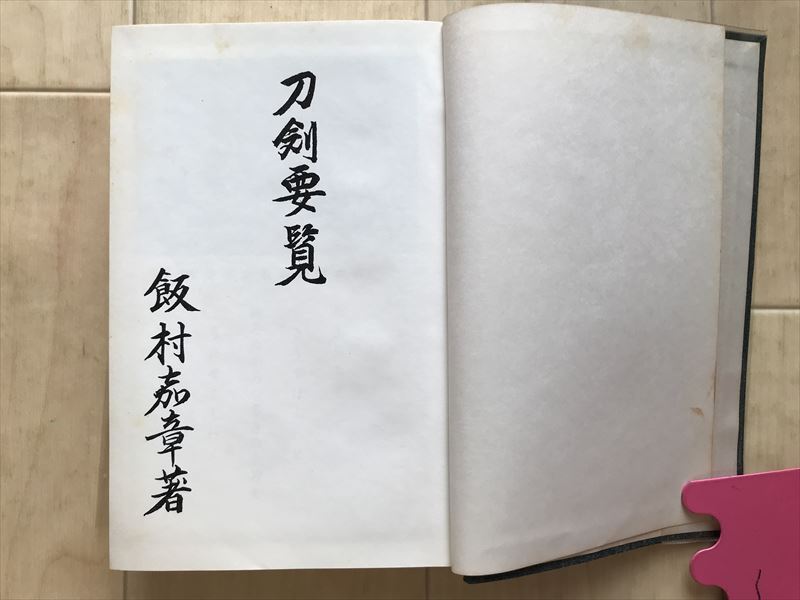 刀剣要覧
飯村嘉章著